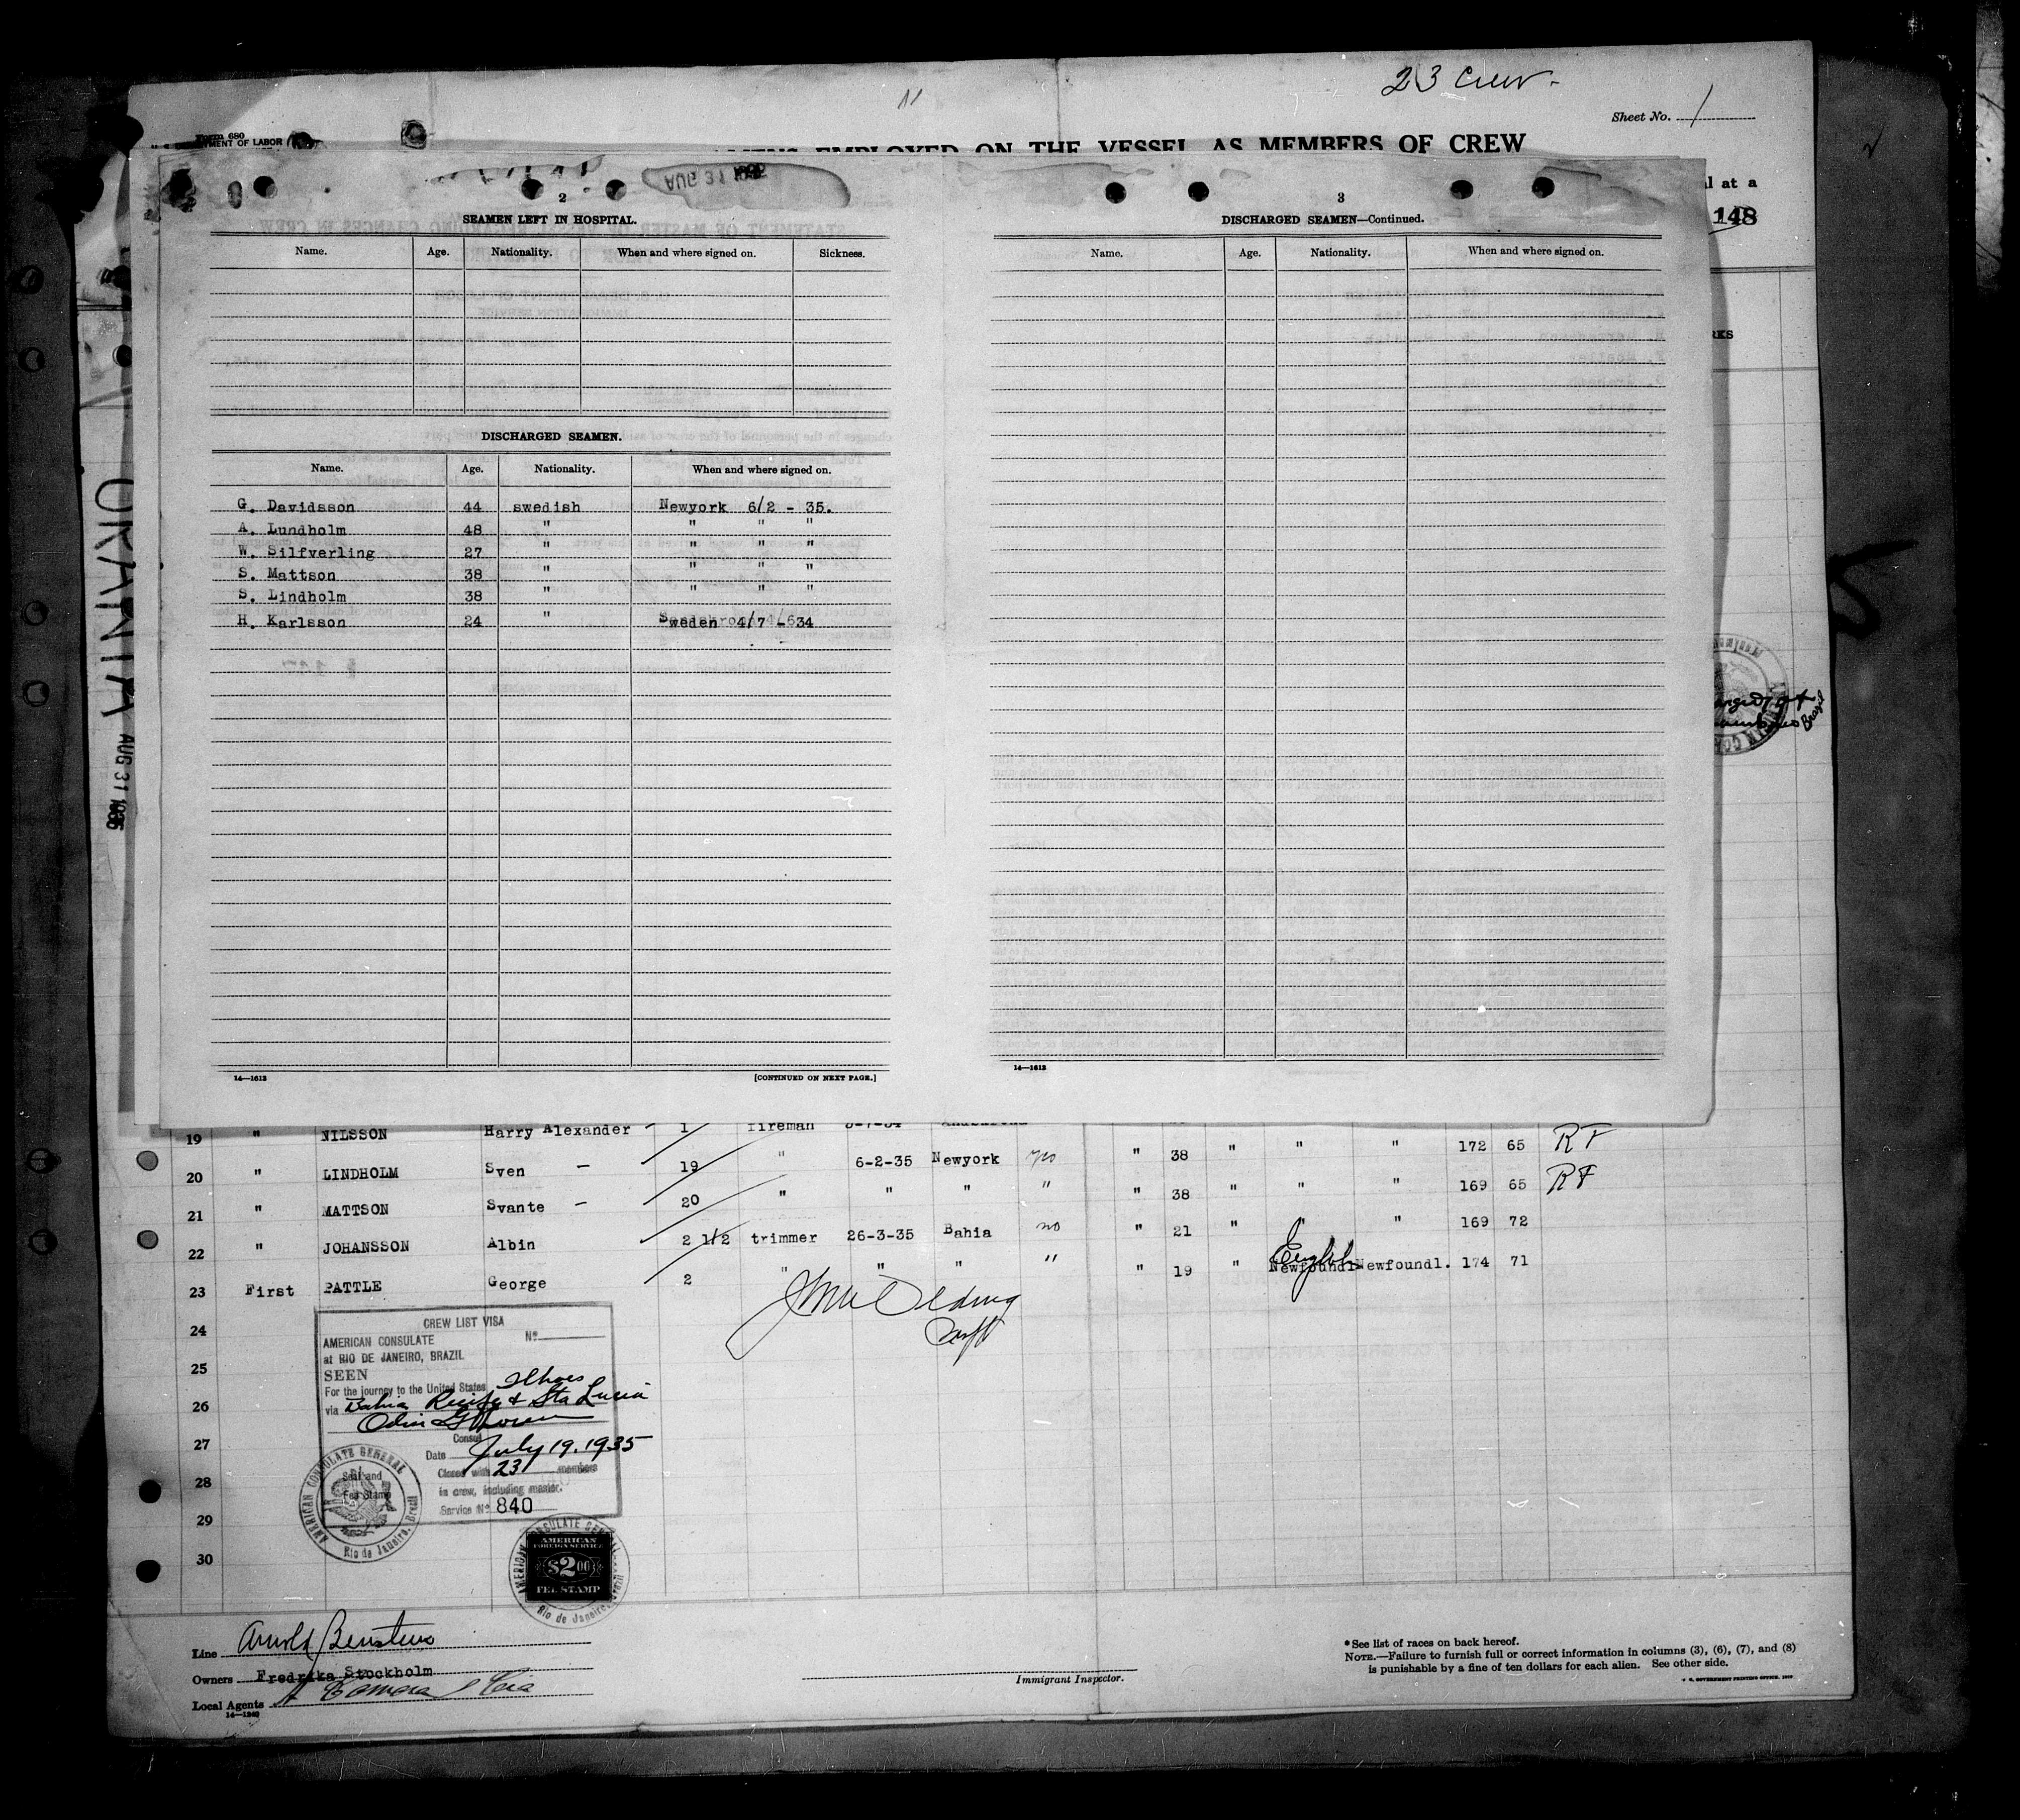 23 Crew
Sheet No. 1
Form 680
OF LABOR
EMPLOYED ON THE VESSEL AS MEMBERS OF CREW
al at a
148
RKS
AUG 31 1935
2
SEAMEN LEFT IN HOSPITAL.
Name. Age. Nationality. When and where signed on. Sickness.
DISCHARGED SEAMEN.
Name. Age. Nationality. When and where signed on.
G. Davidsson 44 swedish Newyork 6/2 - 35.
A. Lundholm 48 " " " "
W. Silfverling 27 " " " "
S. Mattson 38 " " " "
S. Lindholm 38 " " " "
H. Karlsson 24 " Sweden 4/7 - 34
14—1613 [CONTINUED ON NEXT PAGE.]
3
DISCHARGED SEAMEN—Continued.
Name. Age. Nationality. When and where signed on.
14—1613
URANIA
AUG 31 1935
Brazil
19 " NILSSON Harry Alexander 1 fireman
20 " LINDHOLM Sven — 19 " 6-2-35 Newyork yes " 38 " " " 172 65 RF
21 " MATTSON Svante — 20 " " " " " 38 " " " 169 65 RF
22 " JOHANSSON Albin 2 1/2 trimmer 26-3-35 Bahia no " 21 " " " 169 72
23 First PATTLE George 2 " " " " " 19 " English Newfoundl. Newfoundl. 174 71
24
25
26
27
28
29
30
CREW LIST VISA
AMERICAN CONSULATE No
at RIO DE JANEIRO, BRAZIL
SEEN
For the journey to the United States Ilheos
via Bahia Recife & Sta Lucia
Consul
Date July 19. 1935
Closed with 23 members
in crew, including master.
Service No. 840
AMERICAN CONSULATE GENERAL
Seal and
Fee Stamp
Rio de Janeiro, Brazil
AMERICAN
FOREIGN SERVICE
$2.00
FEE STAMP
Rio de Janeiro
Line Arnold Bernstein
Owners Fredrika Stockholm
Local Agents
14—1240
Immigrant Inspector.
* See list of races on back hereof.
NOTE.—Failure to furnish full or correct information in columns (3), (6), (7), and (8)
is punishable by a fine of ten dollars for each alien. See other side.